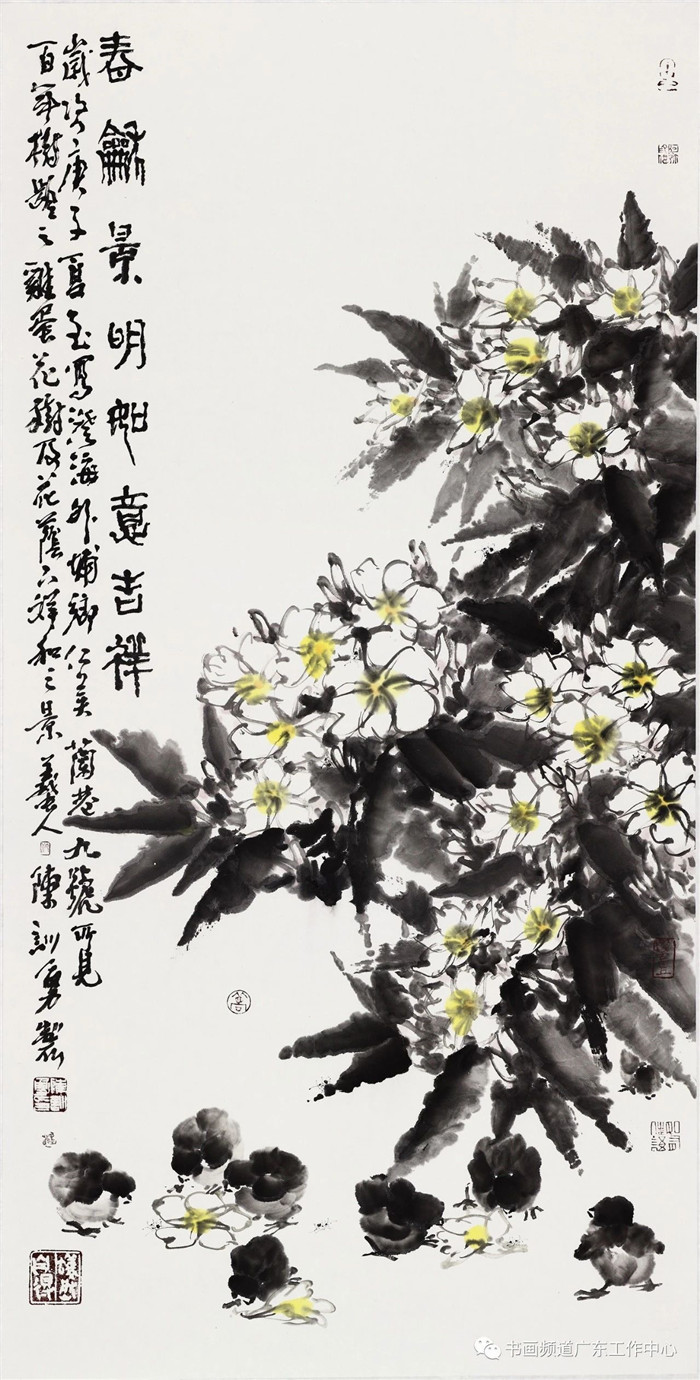 春龢景明如意吉祥
歲次庚子夏至寫澄海外埔鄉仁美蘭巷九號所見
百年樹齡之雞蛋花樹及花蔭下祥和之景 羲人 陳訓勇製
书画频道广东工作中心